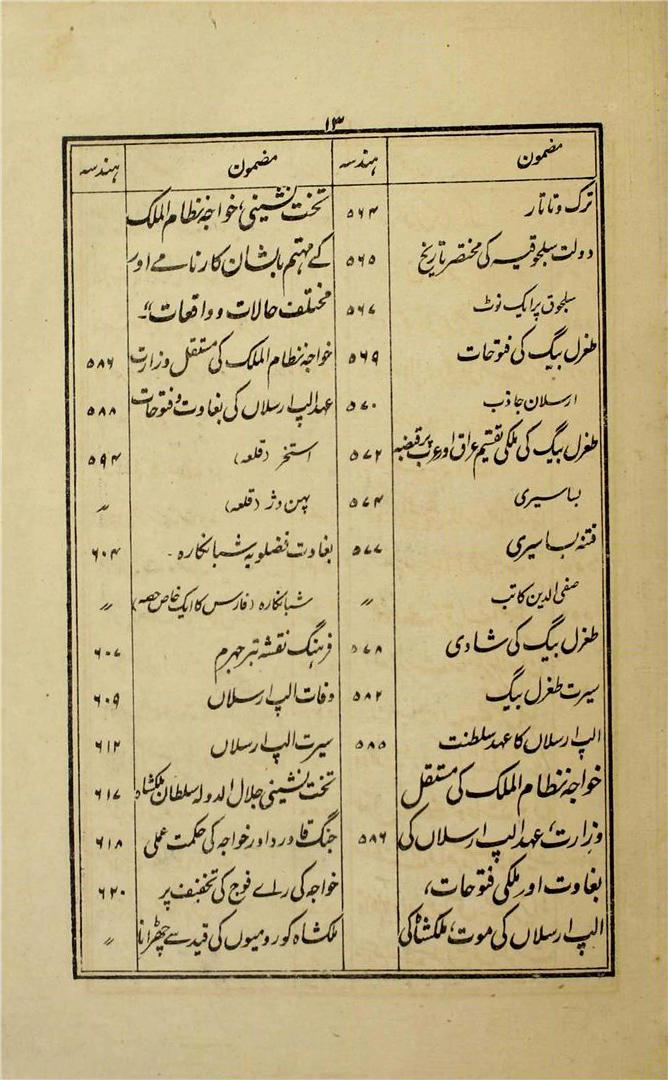 ۱۳
مضمون ہندسہ
ترک و تاتار ۵۶۴
دولت سلجوقیہ کی مختصر تاریخ ۵۶۵
سلجوق پر ایک نوٹ ۵۶۷
طغرل بیگ کی فتوحات ۵۶۹
ارسلان جاذب ۵۷۰
طغرل بیگ کی ملکی تقسیم عراق اور عرب پر قبضہ ۵۷۲
بساسیری ۵۷۴
فتنہ بساسیری ۵۷۷
صفی الدین کاتب ״
طغرل بیگ کی شادی ۵۷۸
سیرت طغرل بیگ ۵۸۲
الپ ارسلاں کا عہد سلطنت ۵۸۵
خواجہ نظام الملک کی مستقل
وزارت، عہد الپ ارسلاں کی ۵۸۶
بغاوت اور ملکی فتوحات،
الپ ارسلاں کی موت، ملکشاہ کی
مضمون ہندسہ
تخت نشینی، خواجہ نظام الملک
کے مہتم بالشان کارنامے اور
مختلف حالات و واقعات"۔
خواجہ نظام الملک کی مستقل وزارت ۵۸۶
عہد الپ ارسلاں کی بغاوت و فتوحات ۵۸۸
استخر (قلعہ) ۵۹۴
پہن دژ (قلعہ) ״
بغاوت فضلویہ شبانکارہ۔ ۶۰۴
شبانکارہ (فارس کا ایک خاص حصہ) ״
فرہنگ نقشہ تبر جہرم ۶۰۷
وفات الپ ارسلاں ۶۰۹
سیرت الپ ارسلاں ۶۱۲
تخت نشینی جلال الدولہ سلطان ملکشاہ ۶۱۷
جنگ قاورد اور خواجہ کی حکمت عملی ۶۱۸
خواجہ کی رائے فوج کی تخفیف پر ۶۲۰
ملکشاہ کو رومیوں کی قید سے چھڑانا ״